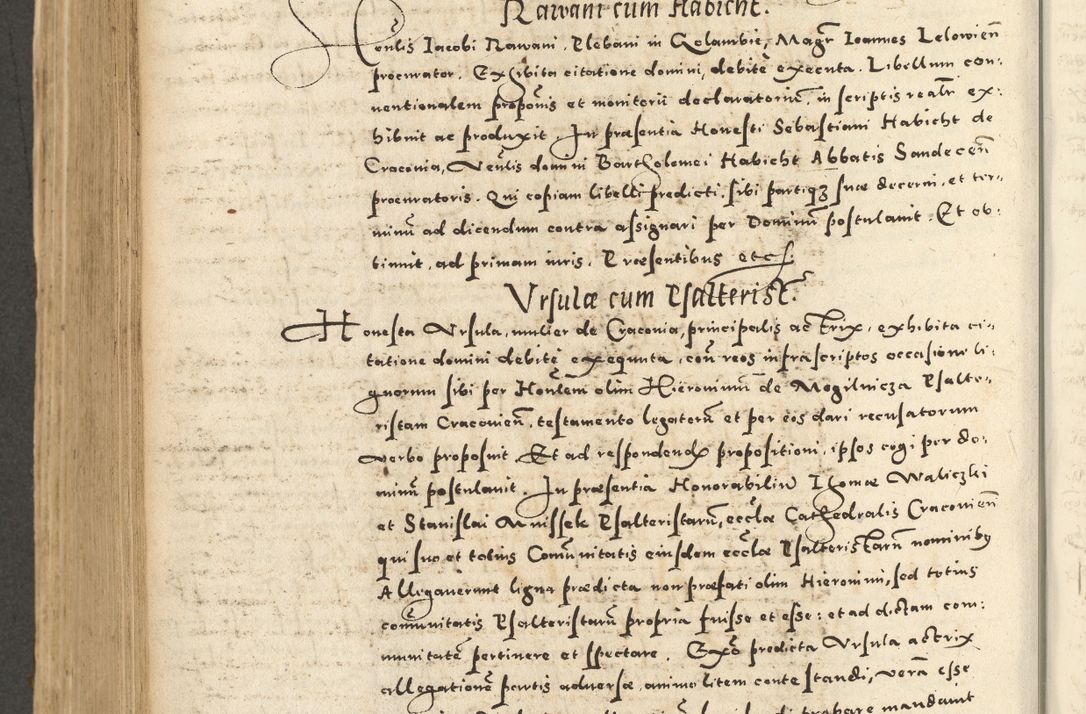 Rawani cum Habicht.
Honlis Iacobi Rawani, Plebani in Golambie, Magr Ioannes Lelowien̄
procurator. Exhibita citatione domini, debite executa. Libellum con:
uentionalem proponis et monitorii declaratoriū, in scriptis realr ex:
hibuit ac produxit. In præsentia Honesti Sebastiani Habicht de
Craconia, Venlis domini Bartholomei Habicht Abbatis Sandecen̄
procuratoris. Qui copiam libelli predicti, sibi partiqꝫ suæ decerni, et ter:
minū ad dicendum contra assignari per Dominū postulauit. Et ob:
tinuit, ad primam iuris. Præsentibus etc.
Vrsulæ cum Psalterist.
Honesta Vrsula, mulier de Craconia, principalis actrix, exhibita ci:
tatione domini debite exequuta, con̄ reos infrascriptos occasione li:
gnorum sibi per Honlem olim Hieronimum de Mogilnicza Psalte:
ristam Cracouien̄, testamento legatorū et per eos dari recusatorum
verbo proposuit Et ad respondendū propositioni, ipsos cogi per do:
minū postulauit. In præsentia Honorabiliū Thomæ Waliczki
et Stanislai Mnissek Psalteristarū, ecclæ Cathedralis Cracouien̄
qui suo et totius Comūnitatis eiusdem ecclæ Psalteristarū nominibꝰ
Allegauerunt ligna prædicta non præfati olim Hieronimi, sed totius
comūnitatis Psalteristarū propria fuisse et esse: et ad dictam com:
munitatē pertinere et spectare. Exo predicta Vrsula actrix
allegationē partis aduersæ, animo litem contestandi, verā esse
probare mandauit